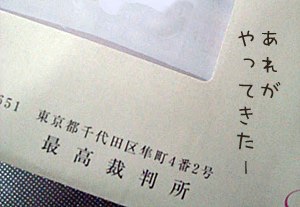 あれが
やってきたー
651 東京都千代田区隼町4番2号
最高裁判所